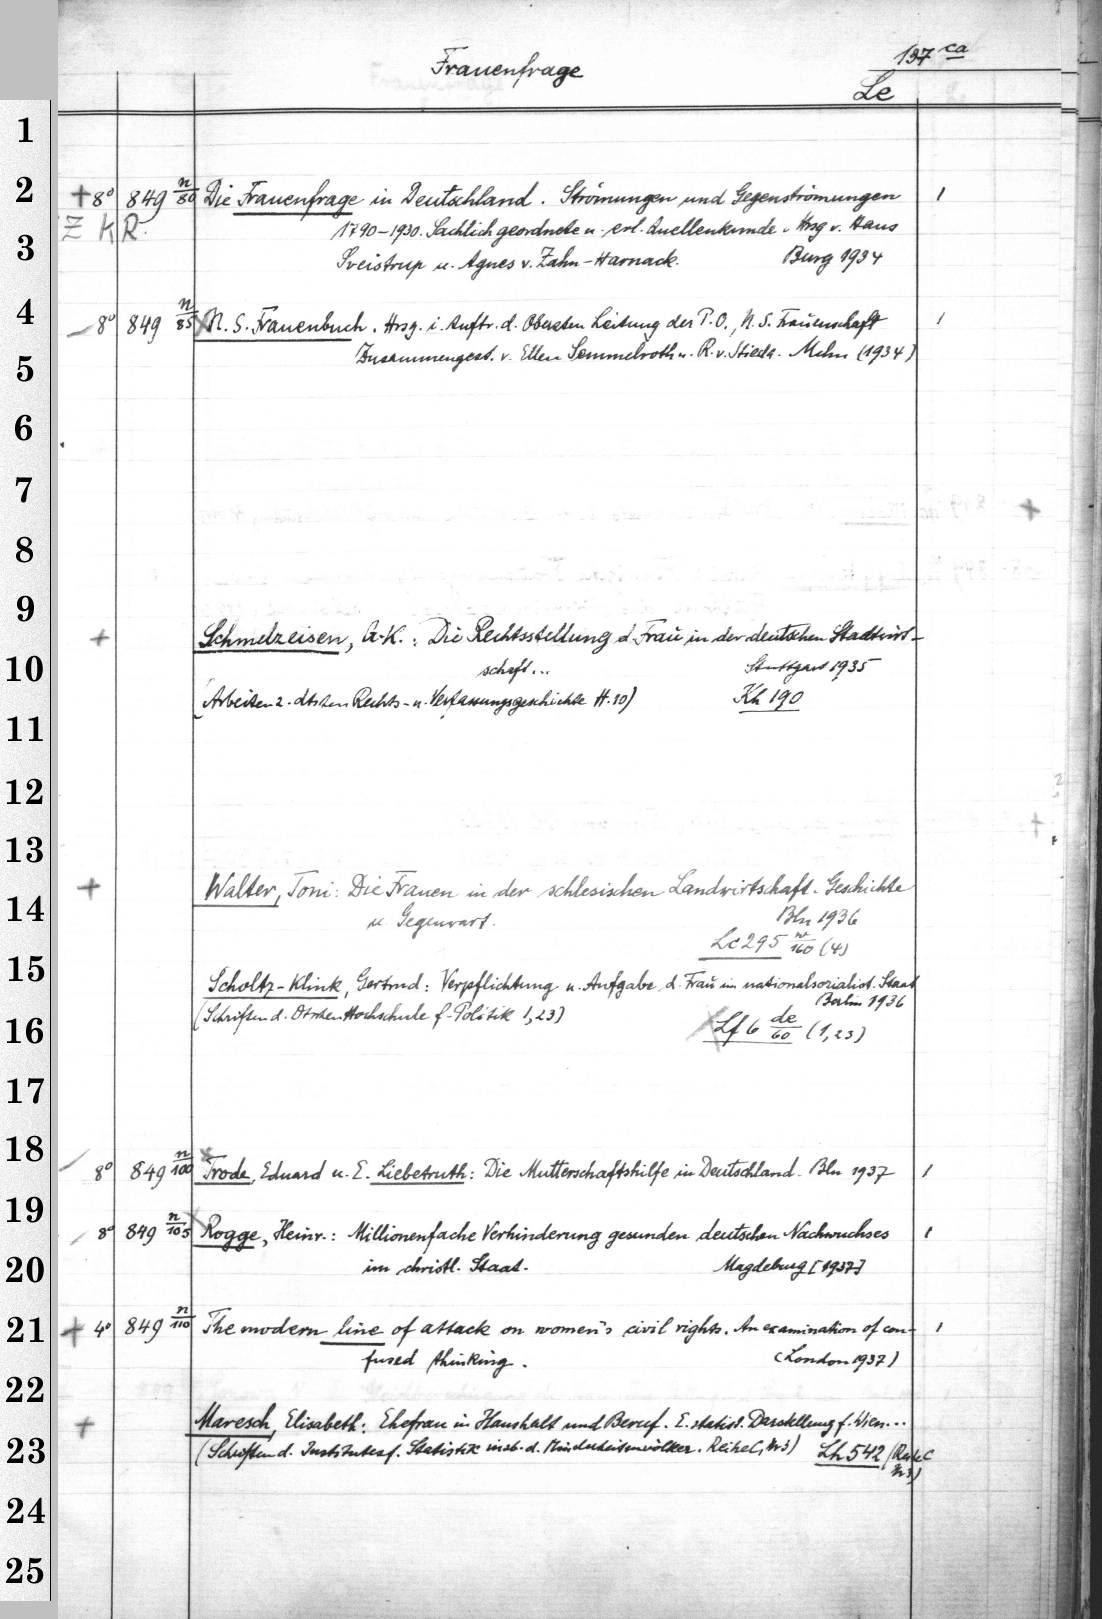 Frauenfrage
137 ca
Le
1
2
3
4
5
6
7
8
9
10
11
12
13
14
15
16
17
18
19
20
21
22
23
24
25
+ 8° 849 n/80 Die Frauenfrage in Deutschland. Strömungen und Gegenströmungen 1
Z K R. 1790-1930. Sachlich geordnete u. erl. Quellenkunde. Hrsg v. Hans
Sveistrup u. Agnes v. Zahn-Harnack. Burg 1934
8° 849 n/85 N. S. Frauenbuch. Hrsg. i. Auftr. d. Obersten Leitung der P. O., N. S. Frauenschaft 1
Zusammengest. v. Ellen Semmelroth u. R. v. Stieda. Mchn (1934)
+ Schmelzeisen, G.K.: Die Rechtsstellung d. Frau in der deutschen Stadtwirt-
schaft... Stuttgart 1935
(Arbeiten z. dtschen Rechts- u. Verfassungsgeschichte H. 10) Kh 190
+ Walter, Toni: Die Frauen in der schlesischen Landwirtschaft. Geschichte
u Gegenwart. Bln 1936
Lc 295 w/160 (4)
Scholtz-Klink, Gertrud: Verpflichtung u. Aufgabe d. Frau im nationalsozialist. Staat
Berlin 1936
(Schriften d. Dtschen Hochschule f. Politik 1,23) Lf 6 de/60 (1,23)
8° 849 n/100 Trode, Eduard u. E. Liebetruth: Die Mutterschaftshilfe in Deutschland. Bln 1937 1
8° 849 n/105 Rogge, Heinr.: Millionenfache Verhinderung gesunden deutschen Nachwuchses 1
im christl. Staat. Magdeburg [1937]
+ 4° 849 n/110 The modern line of attack on women's civil rights. An examination of con- 1
fused thinking. (London 1937)
+ Maresch, Elisabeth: Ehefrau in Haushalt und Beruf. E. statist. Darstellung f. Wien...
(Schriften d. Institutes f. Statistik insb. d. Minderheitenvölker. Reihe C, Nr 3) Lh 542 (Reihe C
Nr 3)